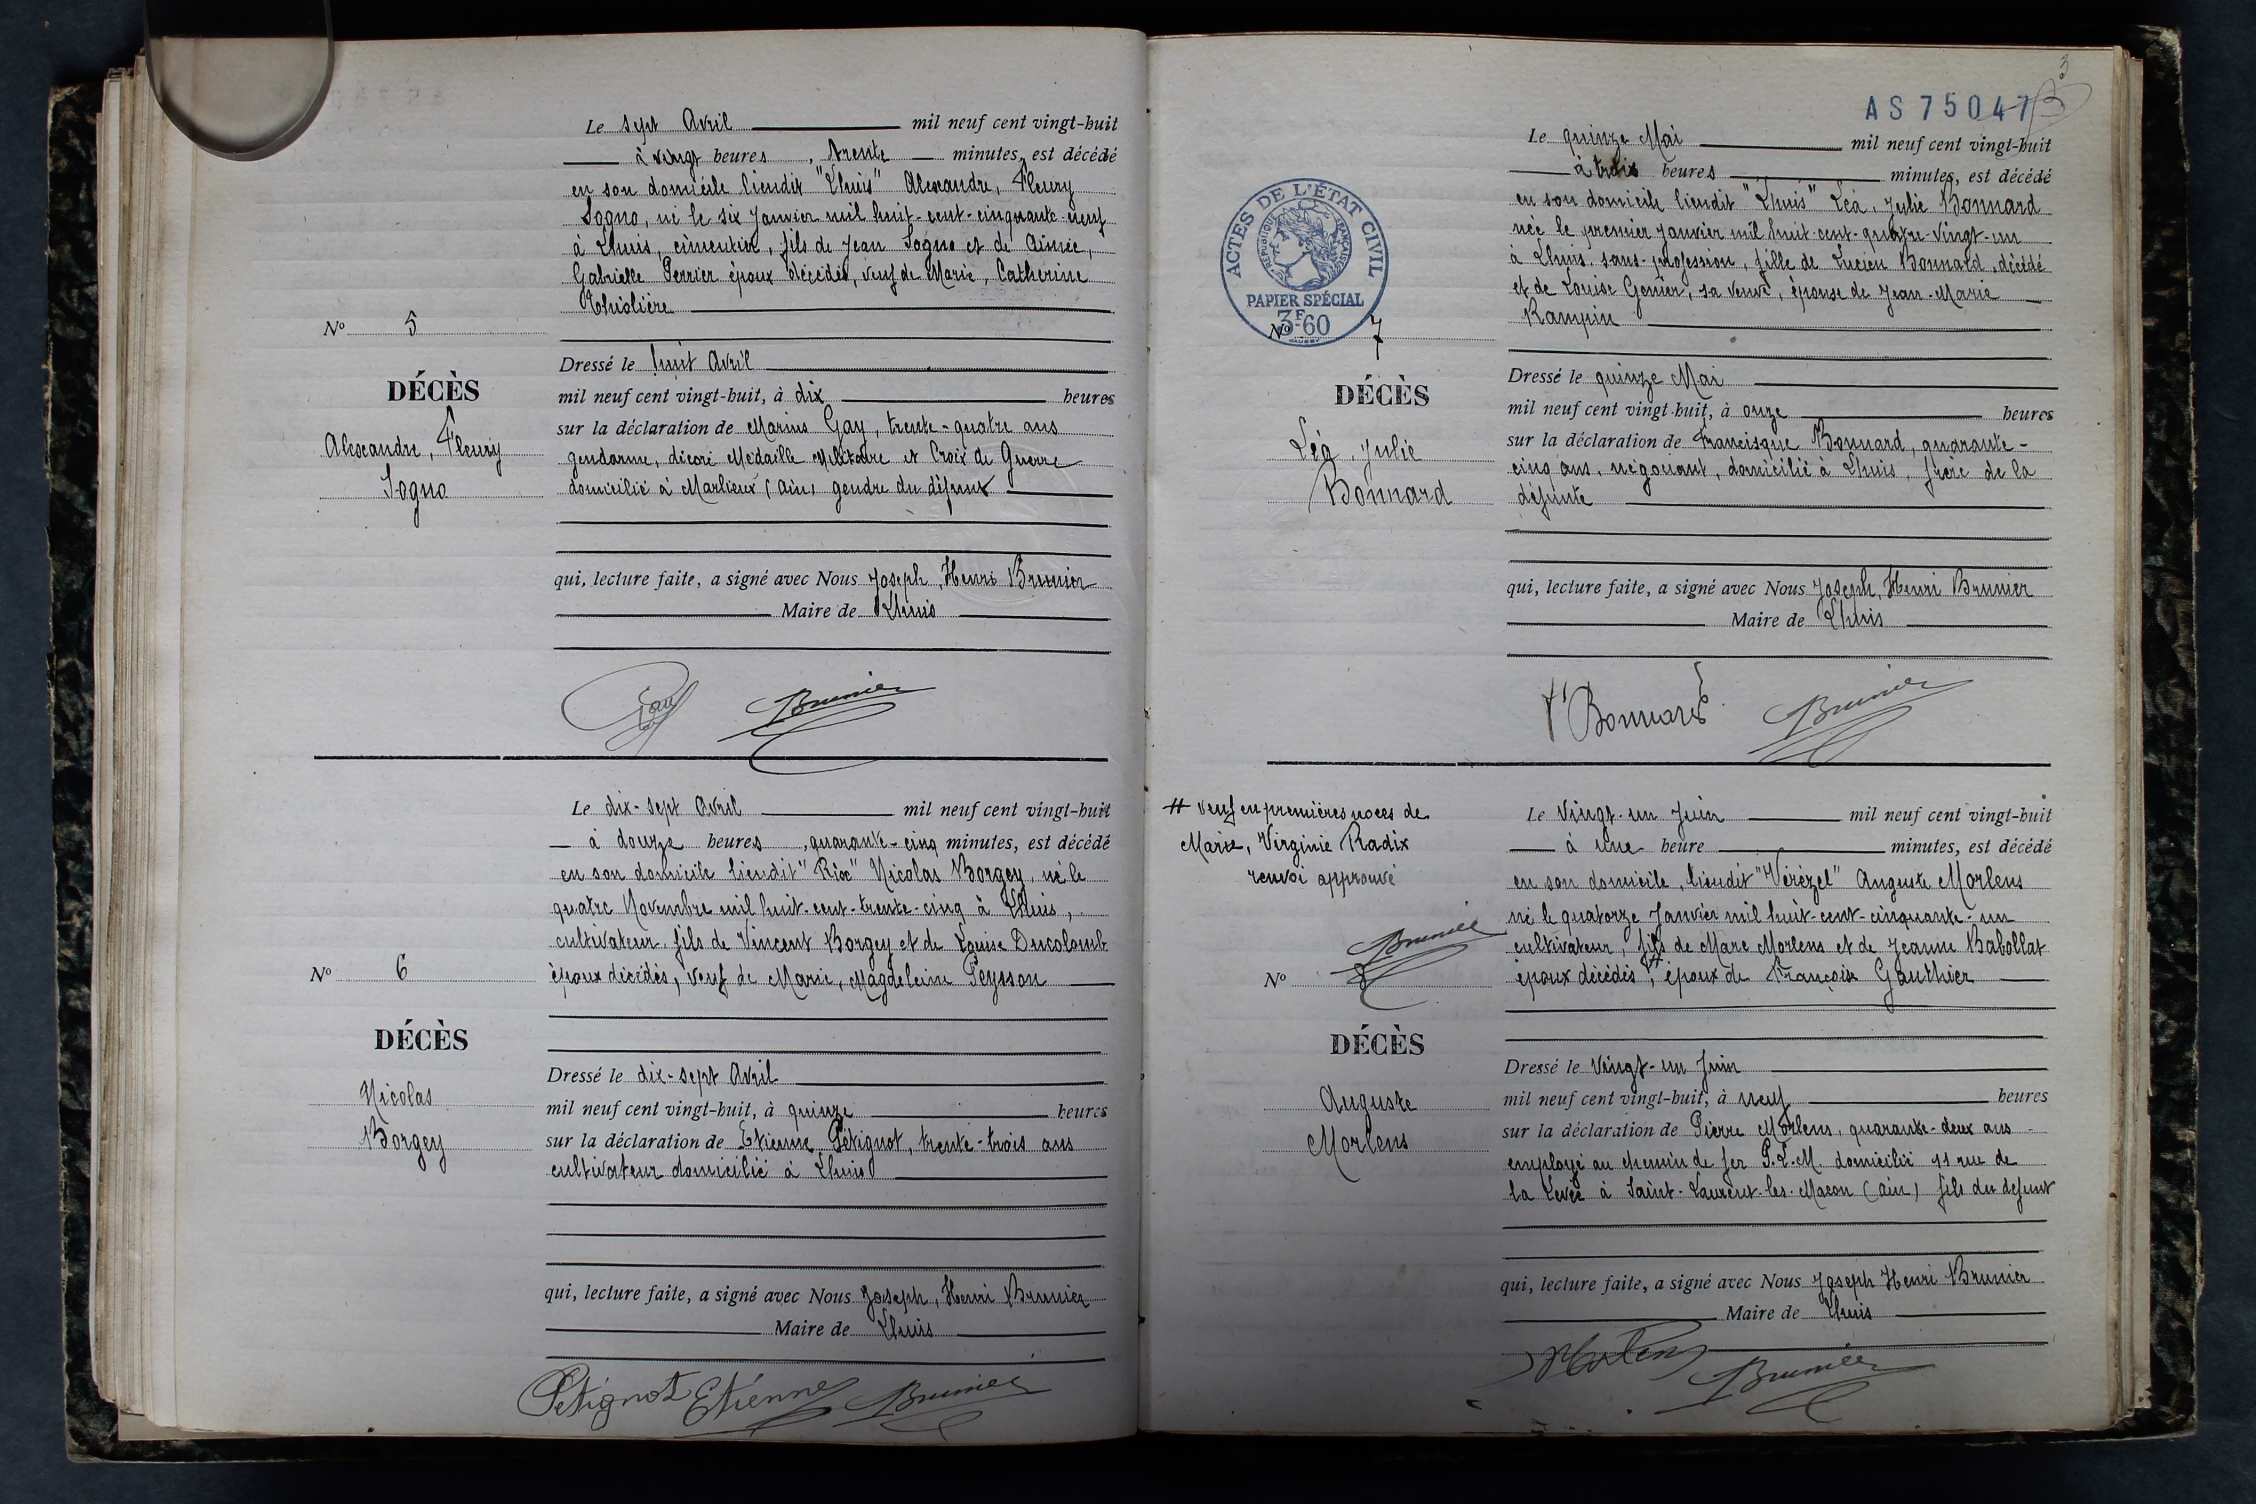 Le sept Avril mil neuf cent vingt-huit
à vingt heures, trente minutes, est décédé
en son domicile lieudit "Lhuis" Alexandre, Fleury
Sogno, né le six Janvier mil huit-cent-cinquante-neuf
à Lhuis, cimentier, fils de Jean Sogno et de Aimée,
Gabrielle Perrier époux décédés, veuf de Marie, Catherine
Thiolière
No 5
DÉCÈS
Alexandre, Fleury
Sogno
Dressé le huit Avril
mil neuf cent vingt-huit, à dix heures
sur la déclaration de Marius Gay, trente-quatre ans
gendarme, décoré Médaille Militaire et Croix de Guerre
domicilié à Marlieux (Ain) gendre du défunt
qui, lecture faite, a signé avec Nous Joseph, Henri Brunier
Maire de Lhuis
Gay Brunier
Le dix-sept Avril mil neuf cent vingt-huit
à douze heures, quarante-cinq minutes, est décédé
en son domicile lieudit "Rix" Nicolas Borgey, né le
quatre Novembre mil huit-cent-trente-cinq à Lhuis,
cultivateur, fils de Vincent Borgey et de Louise Ducolomb
époux décédés, veuf de Marie, Magdeleine Peysson
No 6
DÉCÈS
Nicolas
Borgey
Dressé le dix-sept Avril
mil neuf cent vingt-huit, à quinze heures
sur la déclaration de Etienne Pétignot, trente-trois ans
cultivateur domicilié à Lhuis
qui, lecture faite, a signé avec Nous Joseph, Henri Brunier
Maire de Lhuis
Petignot Etienne Brunier
3
AS 75047
ACTES DE L'ÉTAT CIVIL
RÉPUBLIQUE FRANÇAISE
PAPIER SPÉCIAL
3F60
Le quinze Mai mil neuf cent vingt-huit
à trois heures minutes, est décédé
en son domicile lieudit "Lhuis" Léa, Julie Bonnard
née le premier Janvier mil huit-cent-quatre-vingt-un
à Lhuis, sans-profession, fille de Lucien Bonnard, décédé
et de Louise Genier, sa veuve, épouse de Jean-Marie
Rampin
No 7
DÉCÈS
Léa, Julie
Bonnard
Dressé le quinze Mai
mil neuf cent vingt-huit, à onze heures
sur la déclaration de Francisque Bonnard, quarante-
cinq ans, négociant, domicilié à Lhuis, frère de la
défunte
qui, lecture faite, a signé avec Nous Joseph, Henri Brunier
Maire de Lhuis
F Bonnard Brunier
# veuf en premières noces de
Marie, Virginie Radix
renvoi approuvé
Brunier
Le vingt-un Juin mil neuf cent vingt-huit
à une heure minutes, est décédé
en son domicile, lieudit "Vérézel" Auguste Morlens
né le quatorze Janvier mil huit-cent-cinquante-un
cultivateur, fils de Marc Morlens et de Jeanne Babollat
époux décédés #, époux de Françoise Gauthier
No 8
DÉCÈS
Auguste
Morlens
Dressé le vingt-un Juin
mil neuf cent vingt-huit, à neuf heures
sur la déclaration de Pierre Morlens, quarante-deux ans
employé au chemin de fer P.L.M. domicilié 11 rue de
la Levée à Saint-Laurent-les-Macon (Ain) fils du défunt
qui, lecture faite, a signé avec Nous Joseph Henri Brunier
Maire de Lhuis
Morlens Brunier